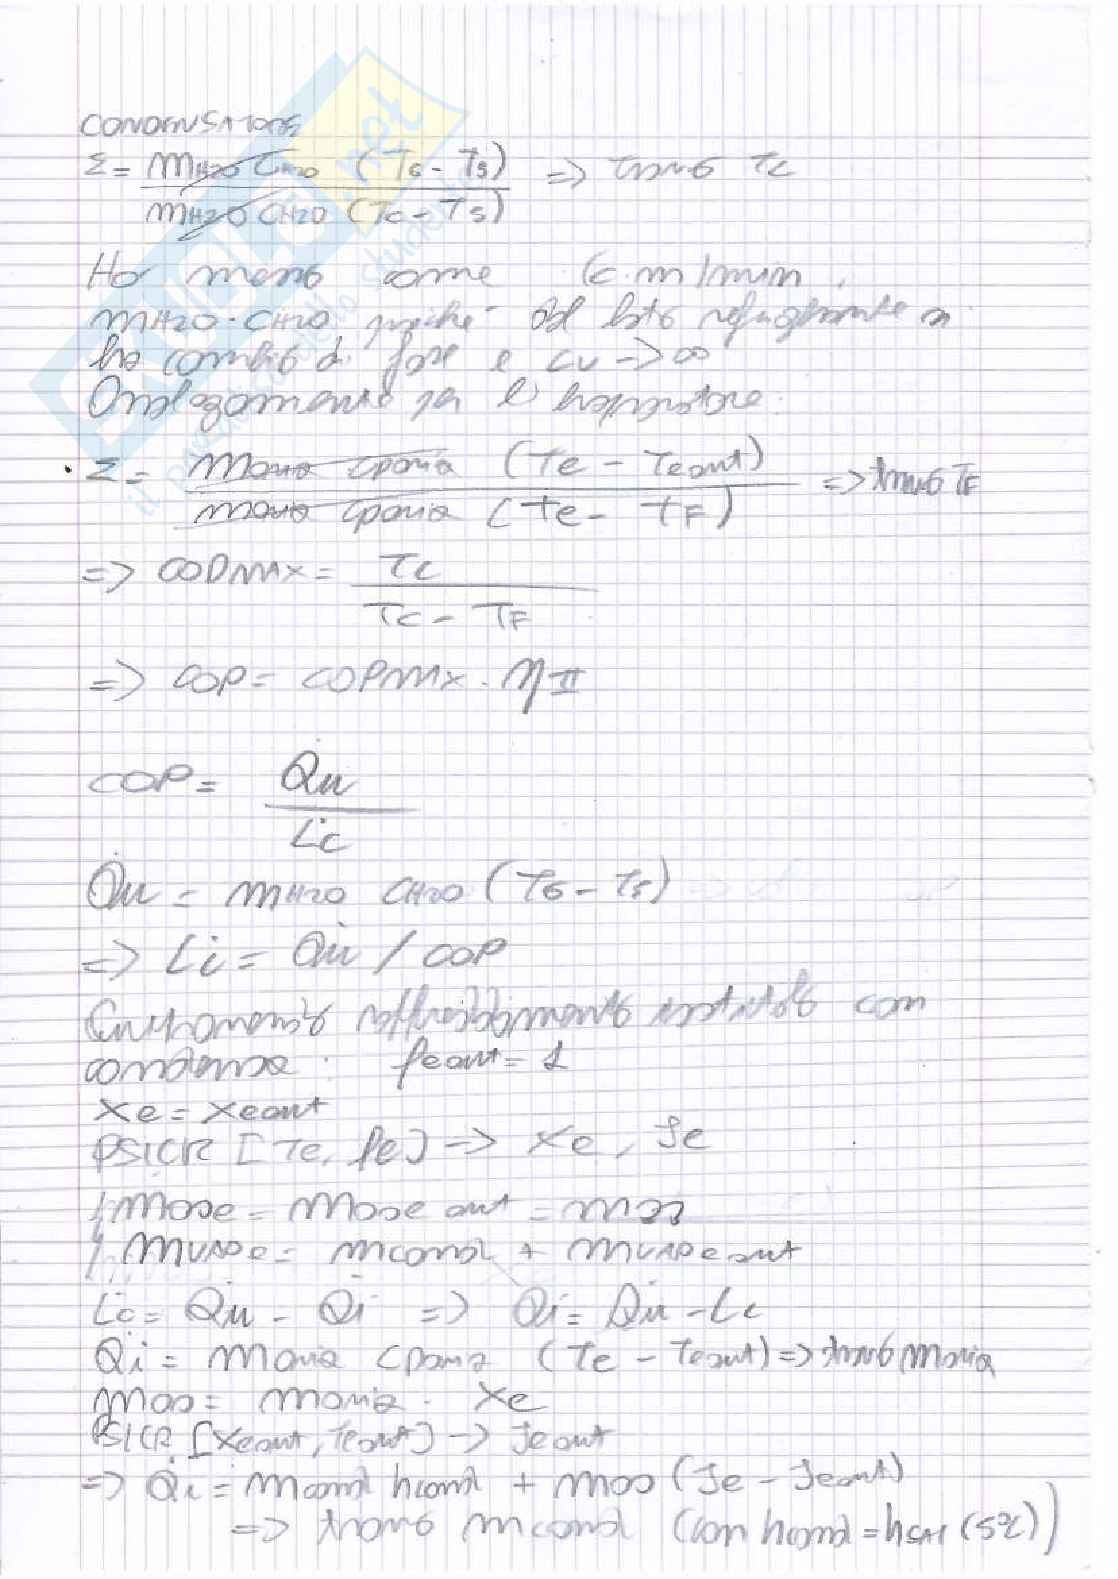 CONDENSATORE
Σ = ṁH2O CH2O (T6 - T5) / ṁH2O CH2O (Tc - T5) => trovo Tc
Ho messo come (c·m)min,
ṁH2O·CH2O, poiché dal lato refrigerante si
ha cambio di fase e cv -> ∞
Analogamente per l'evaporatore:
Σ = ṁaria cparia (Te - Teout) / ṁaria cparia (Te - TF) => trovo TF
=> COPMAX = Tc / Tc - TF
=> COP = COPMAX · ηII
COP = Q̇u / L̇c
Q̇u = ṁH2O CH2O (T6 - T5)
=> L̇c = Q̇u / COP
raffreddamento isotitolo con
condensa: φeout = 1
Xe = Xeout
PSICR [Te, φe] -> Xe, Je
ṁase = ṁase out = ṁas
ṁvape = ṁcond + ṁvapeout
L̇c = Q̇u - Q̇i => Q̇i = Q̇u - L̇c
Q̇i = ṁaria cparia (Te - Teout) => trovo ṁaria
ṁas = ṁaria · Xe
PSICR [Xeout, Teout] -> Jeout
=> Q̇i = ṁcond hcond + ṁas (Je - Jeout)
=> trovo ṁcond (con hcond = hsat (5°C))
il paradiso dello studente